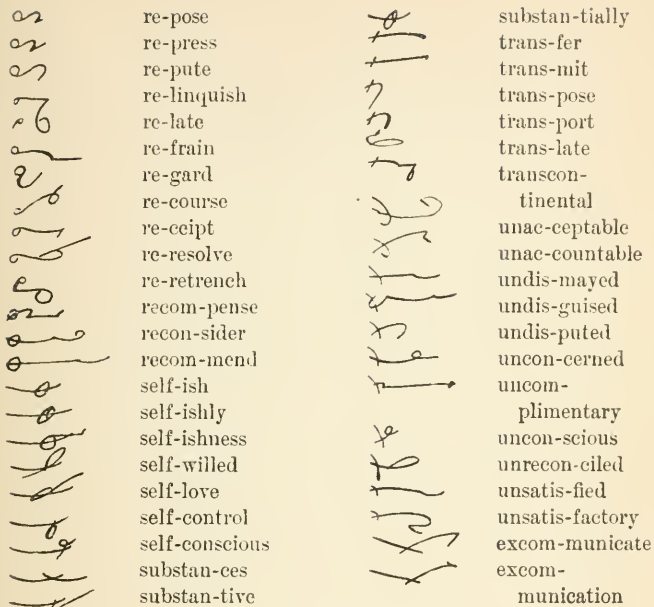 re-pose
re-press
re-pute
re-linquish
re-late
re-frain
re-gard
re-course
re-ceipt
re-resolve
re-retrench
recom-pense
recon-sider
recom-mend
self-ish
self-ishly
self-ishness
self-willed
self-love
self-control
self-conscious
substan-ces
substan-tive
substan-tially
trans-fer
trans-mit
trans-pose
trans-port
trans-late
transcon-
tinental
unac-ceptable
unac-countable
undis-mayed
undis-guised
undis-puted
uncon-cerned
uncom-
plimentary
uncon-scious
unrecon-ciled
unsatis-fied
unsatis-factory
excom-municate
excom-
munication